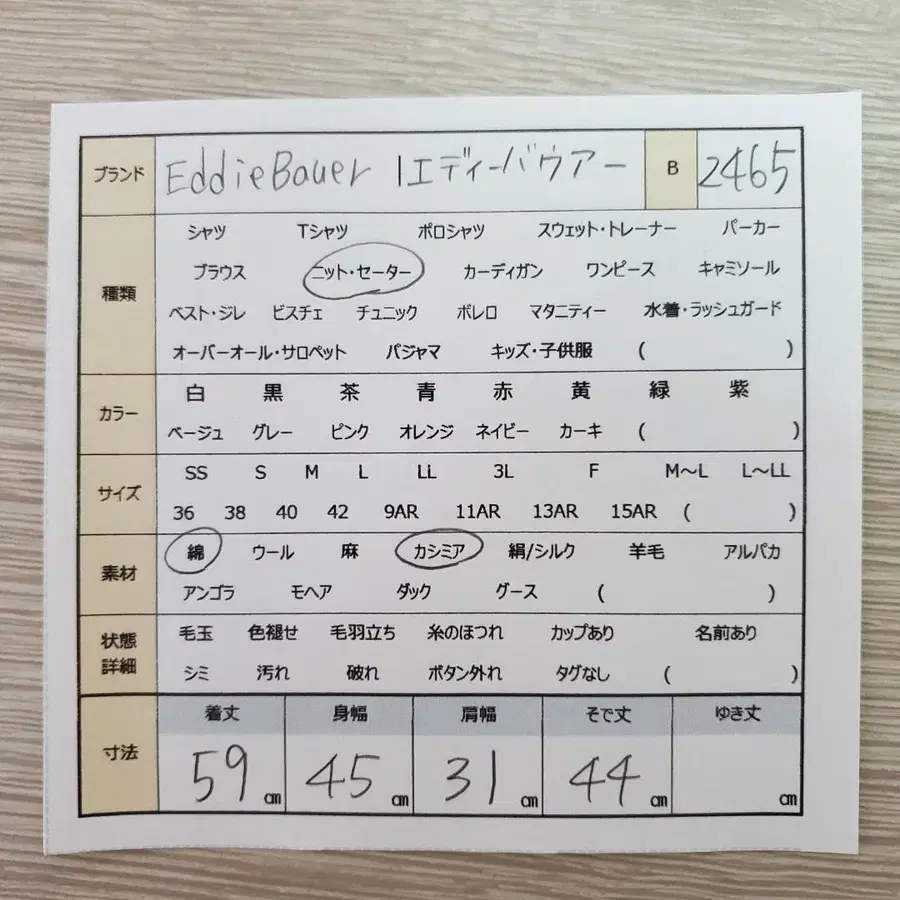 ブランド EddieBauer | エディーバウアー B 2465
シャツ Tシャツ ポロシャツ スウェット・トレーナー パーカー
ブラウス ニット・セーター カーディガン ワンピース キャミソール
種類
ベスト・ジレ ビスチェ チュニック ボレロ マタニティー 水着・ラッシュガード
オーバーオール・サロペット パジャマ キッズ・子供服 ( )
白 黒 茶 青 赤 黄 緑 紫
カラー
ベージュ グレー ピンク オレンジ ネイビー カーキ ( )
SS S M L LL 3L F M～L L～LL
サイズ
36 38 40 42 9AR 11AR 13AR 15AR ( )
綿 ウール 麻 カシミア 絹/シルク 羊毛 アルパカ
素材
アンゴラ モヘア ダック グース ( )
状態 毛玉 色褪せ 毛羽立ち 糸のほつれ カップあり 名前あり
詳細 シミ 汚れ 破れ ボタン外れ タグなし ( )
着丈 身幅 肩幅 そで丈 ゆき丈
寸法
59 cm 45 cm 31 cm 44 cm cm